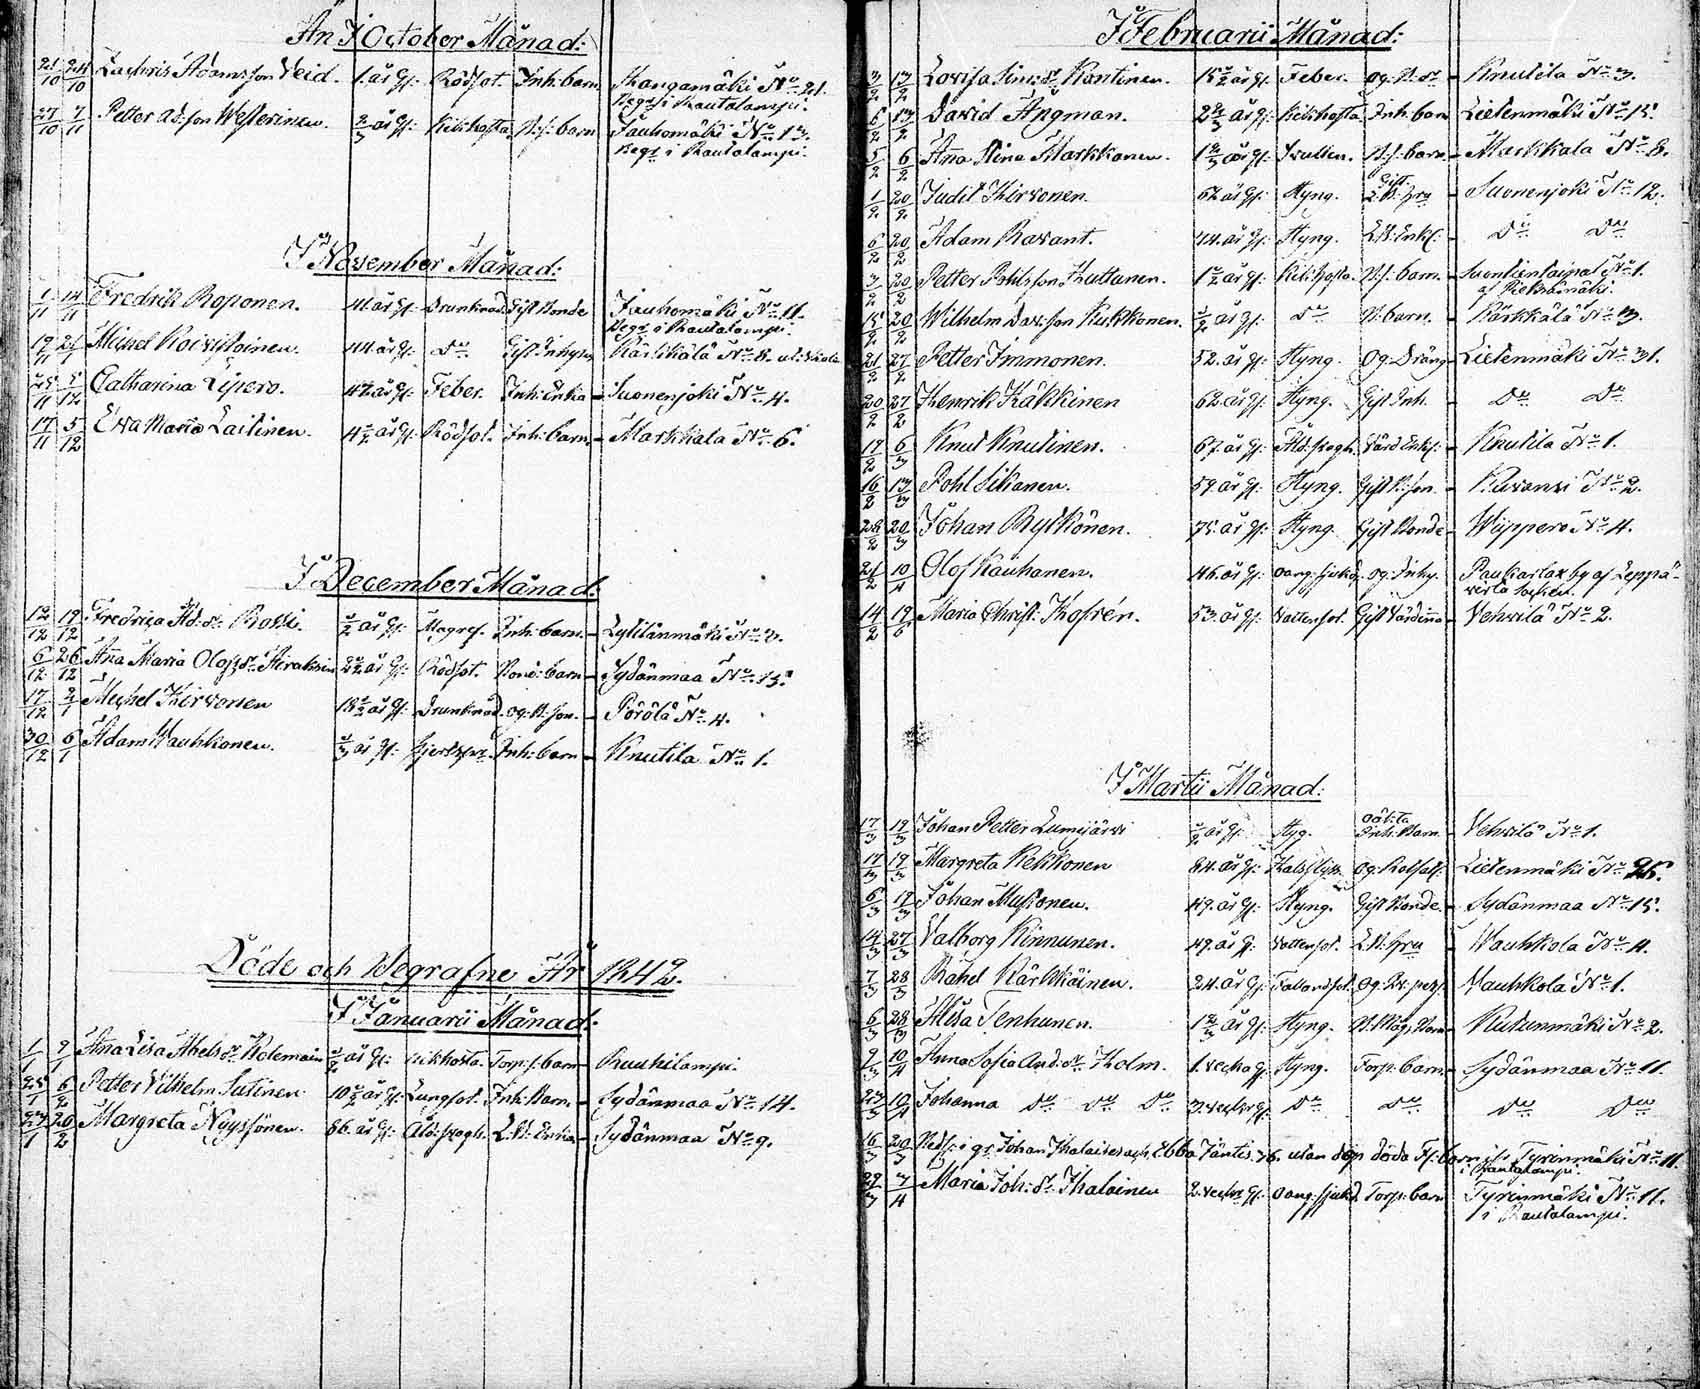 Än I October Månad:
21/10 24/10 Zachris Adamsson Veid. 1. år gl: Rödsot. Inh: barn Kangamäki No 21.
Begr: i Rautalampi.
27/10 7/11 Petter Ad:son Westerinen. 2/3 år gl: Kikhosta B:s: barn Jauhomäki No 13.
Begr: i Rautalampi.
I November Månad:
1/11 14/11 Fredrik Roponen. 41. år gl: Drunknad Gift Bonde Jauhomäki No 11.
Begr: i Rautalampi.
19/11 21/11 Michel Koivistoinen. 44. år gl: Do Gift Inhys Kärkkälä No 8.
25/11 5/12 Catharina Lipero. år gl: Feber. Inh: Enka Suonenjoki No 4.
17/11 5/12 Ewa Maria Laitinen. 4 1/2 år gl: Rödsot. Inh: barn Markkala No 6.
I December Månad:
12/12 19/12 Fredrica Ad: dr Rossi. 1/2 år gl: Magref. Inh: barn Lylilänmäki No 3.
6/12 26/12 Aña Maria Olofsdr Hiraksin 2 1/2 år gl: Rödsot. Bond: barn Sydänmaa No 15.
17/12 2/1 Michel Hirvonen 18 1/2 år gl: Drunknad. og: B: son. Pörölä No 4.
30/12 6/1 Adam Wauhkonen. 1/3 år gl: Inh: barn Knutila No 1.
Döde och Begrafne År 1842.
I Januarii Månad:
1/1 9/1 Aña Lisa Abelsdr Kolemain 1/2 år gl: Kikhosta. Torp: s: barn Rauhilampi.
25/1 6/2 Petter Vilhelm Sutinen 10 1/2 år gl: Lungsot. Inh: Barn. Sydänmaa No 14.
23/1 20/2 Margreta Nyyssönen. 66. år gl: Åld: bogh. E: B: Enka Sydänmaa No 9.
I Februarii Månad:
3/2 13/2 Lovisa Sim: dr Kontinen. 15 1/2 år gl: Feber. og: B: dr Knutila No 3.
6/2 13/2 David Ängman. 2 2/3 år gl: Kikhosta Inh: barn Lietenmäki No 15.
5/2 6/2 Aña Stina Markkanen. 1 2/3 år gl: B: s: barn Markkala No 8.
1/2 20/2 Judit Hirvonen. 67. år gl: Styng. Gift E: B: hru Suonenjoki No 12.
6/2 20/2 Adam Ravant. 44. år gl: Styng. E: B: Enkl: Do Do
3/2 20/2 Petter Pohlsson Huttunen. 1 1/2 år gl: Kikhosta. B: s: barn. Suontientaipal No 1.
af Pieksämäki.
15/2 20/2 Wilhelm Davsson Kukkonen. 1/2 år gl: Do B: barn. Kärkkälä No 3.
21/2 27/2 Petter Immonen. 52. år gl: Styng. Og: Dräng Lietenmäki No 31.
20/2 27/2 Henrik Häkkinen 62. år gl: Styng. Gift Inh. Do Do
19/2 6/3 Knut Knutinen. 67. år gl: Åld: bogh. Värd Enkl: Knutila No 1.
16/2 13/3 Pohl Sikanen. 59. år gl: Styng. Gift B: son. Kuvansi No 2.
28/2 20/3 Johan Rytkönen. 75. år gl: Styng. Gift Bonde Wippero No 4.
21/2 10/4 Olof Kauhanen. 46. år gl: oang: sjukd. og: Inhy. Paukarlax by af Leppä-
virta socken.
14/2 19/6 Maria Christ: Hofrén. 53. år gl: Vattensot. Gift Värdiña Vehvilä No 2.
I Martii Månad:
17/3 19/3 Johan Petter Lumijärvi 1/2 år gl: Styg. oäkta Inh: Barn Vehvilä No 1.
17/3 19/3 Margreta Kekkonen 84. år gl: og: Lietenmäki No 25.
6/3 19/3 Johan Mustonen. 49. år gl: Styng. Gift Bonde. Sydänmaa No 15.
14/3 27/3 Valborg Kinnunen. 49. år gl: Vattensot. E: B: hru Wauhkola No 4.
7/3 28/3 Rahel Kärkkäinen. 24. år gl: Fallandsot. Og: Wauhkola No 1.
6/3 28/3 Alisa Tenhunen. 1 2/3 år gl: Styng. Kutunmäki No 2.
9/3 10/4 Anna Sofia And: dr Holm. 1. vecka gl: Styng. Torp: barn Sydänmaa No 11.
23/3 10/4 Johanna Do Do Do 3. vecker gl: Do Do Do Do
16/3 20/3 Johan Halaises och Ebba Jäntis utan dop döda Tyrinmäki No 11.
i Rautalampi.
29/3 7/4 Maria Joh: dr Halainen 2. vecker gl: oang: sjukd. Torp: barn Tyrinmäki No 11.
i Rautalampi.